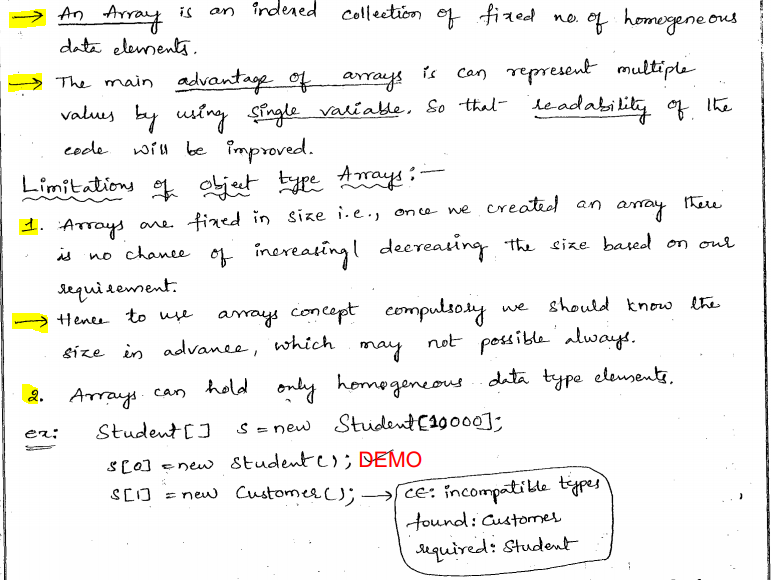 → An Array is an indexed collection of fixed no. of homogeneous
data elements.
→ The main advantage of arrays is can represent multiple
values by using single variable. So that readability of the
code will be improved.
Limitations of object type Arrays:—
1. Arrays are fixed in size i.e., once we created an array there
is no chance of increasing/ decreasing the size based on our
requirement.
→ Hence to use arrays concept compulsory we should know the
size in advance, which may not possible always.
2. Arrays can hold only homogeneous data type elements.
ex: Student[] s = new Student[10000];
s[0] = new Student(); DEMO
s[1] = new Customer(); → CE: incompatible types
found: Customer
required: Student